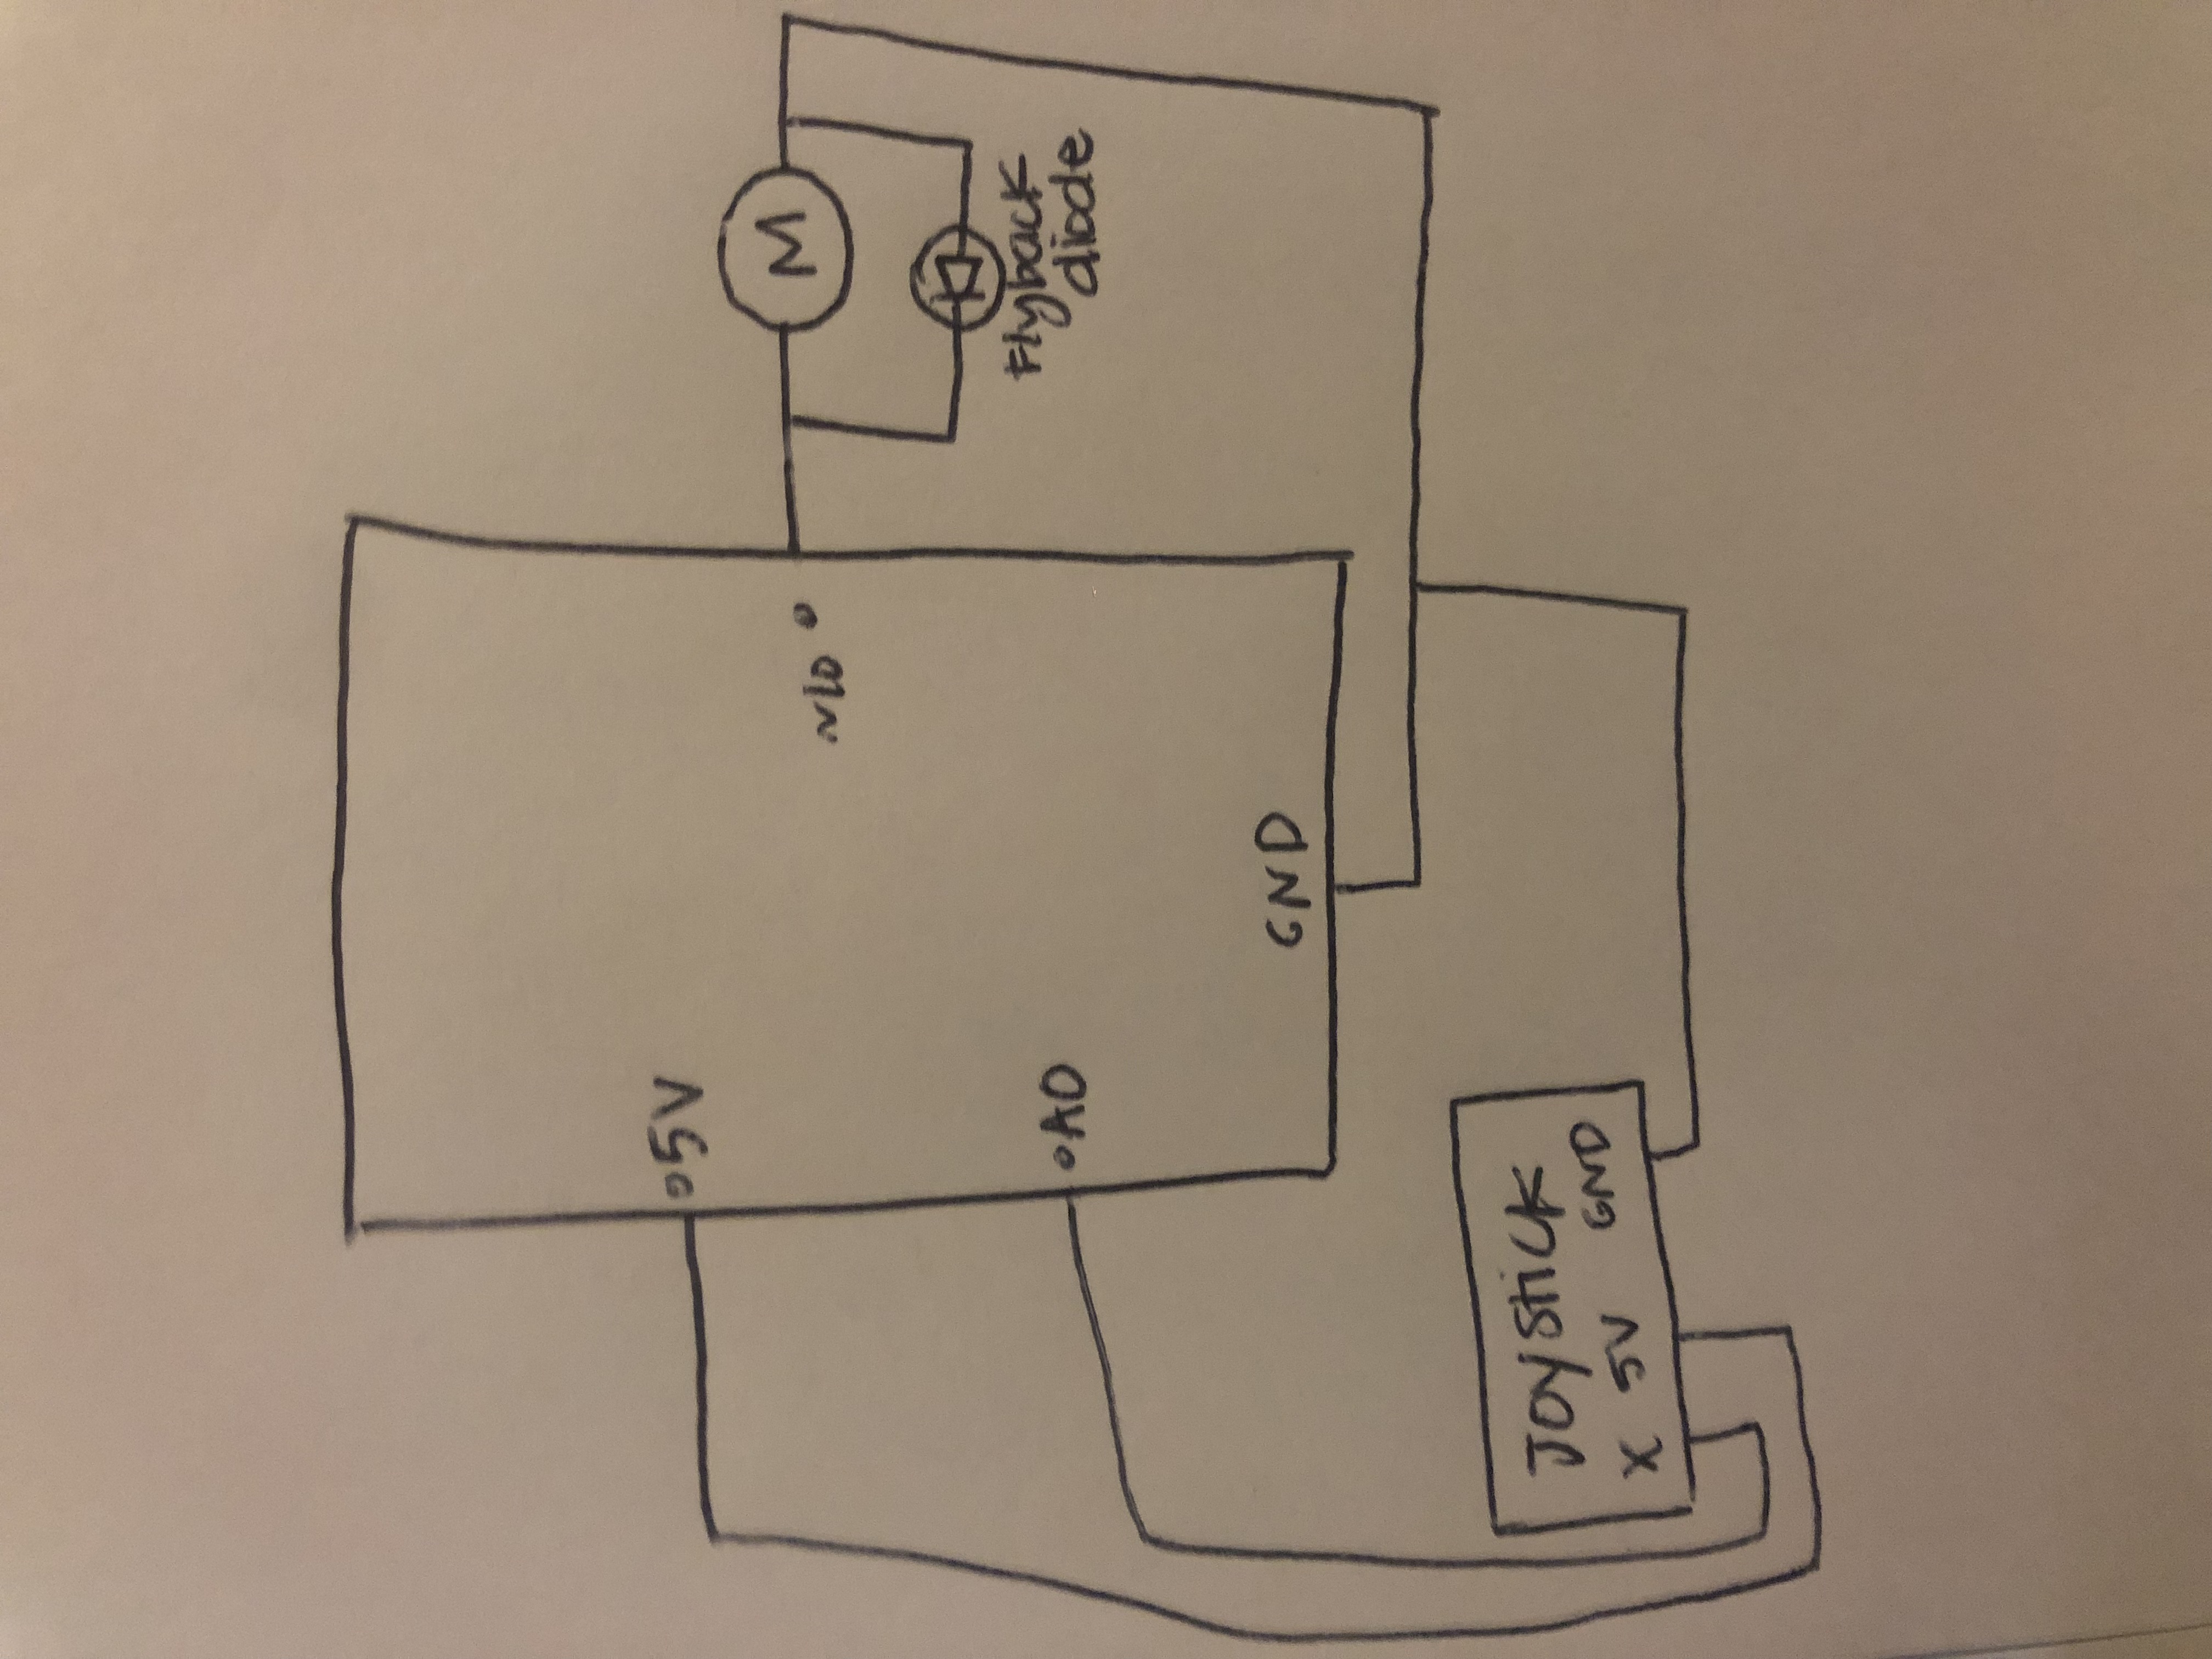 5V
~10
M
Flyback
diode
A0
GND
Joystick
X 5V GND